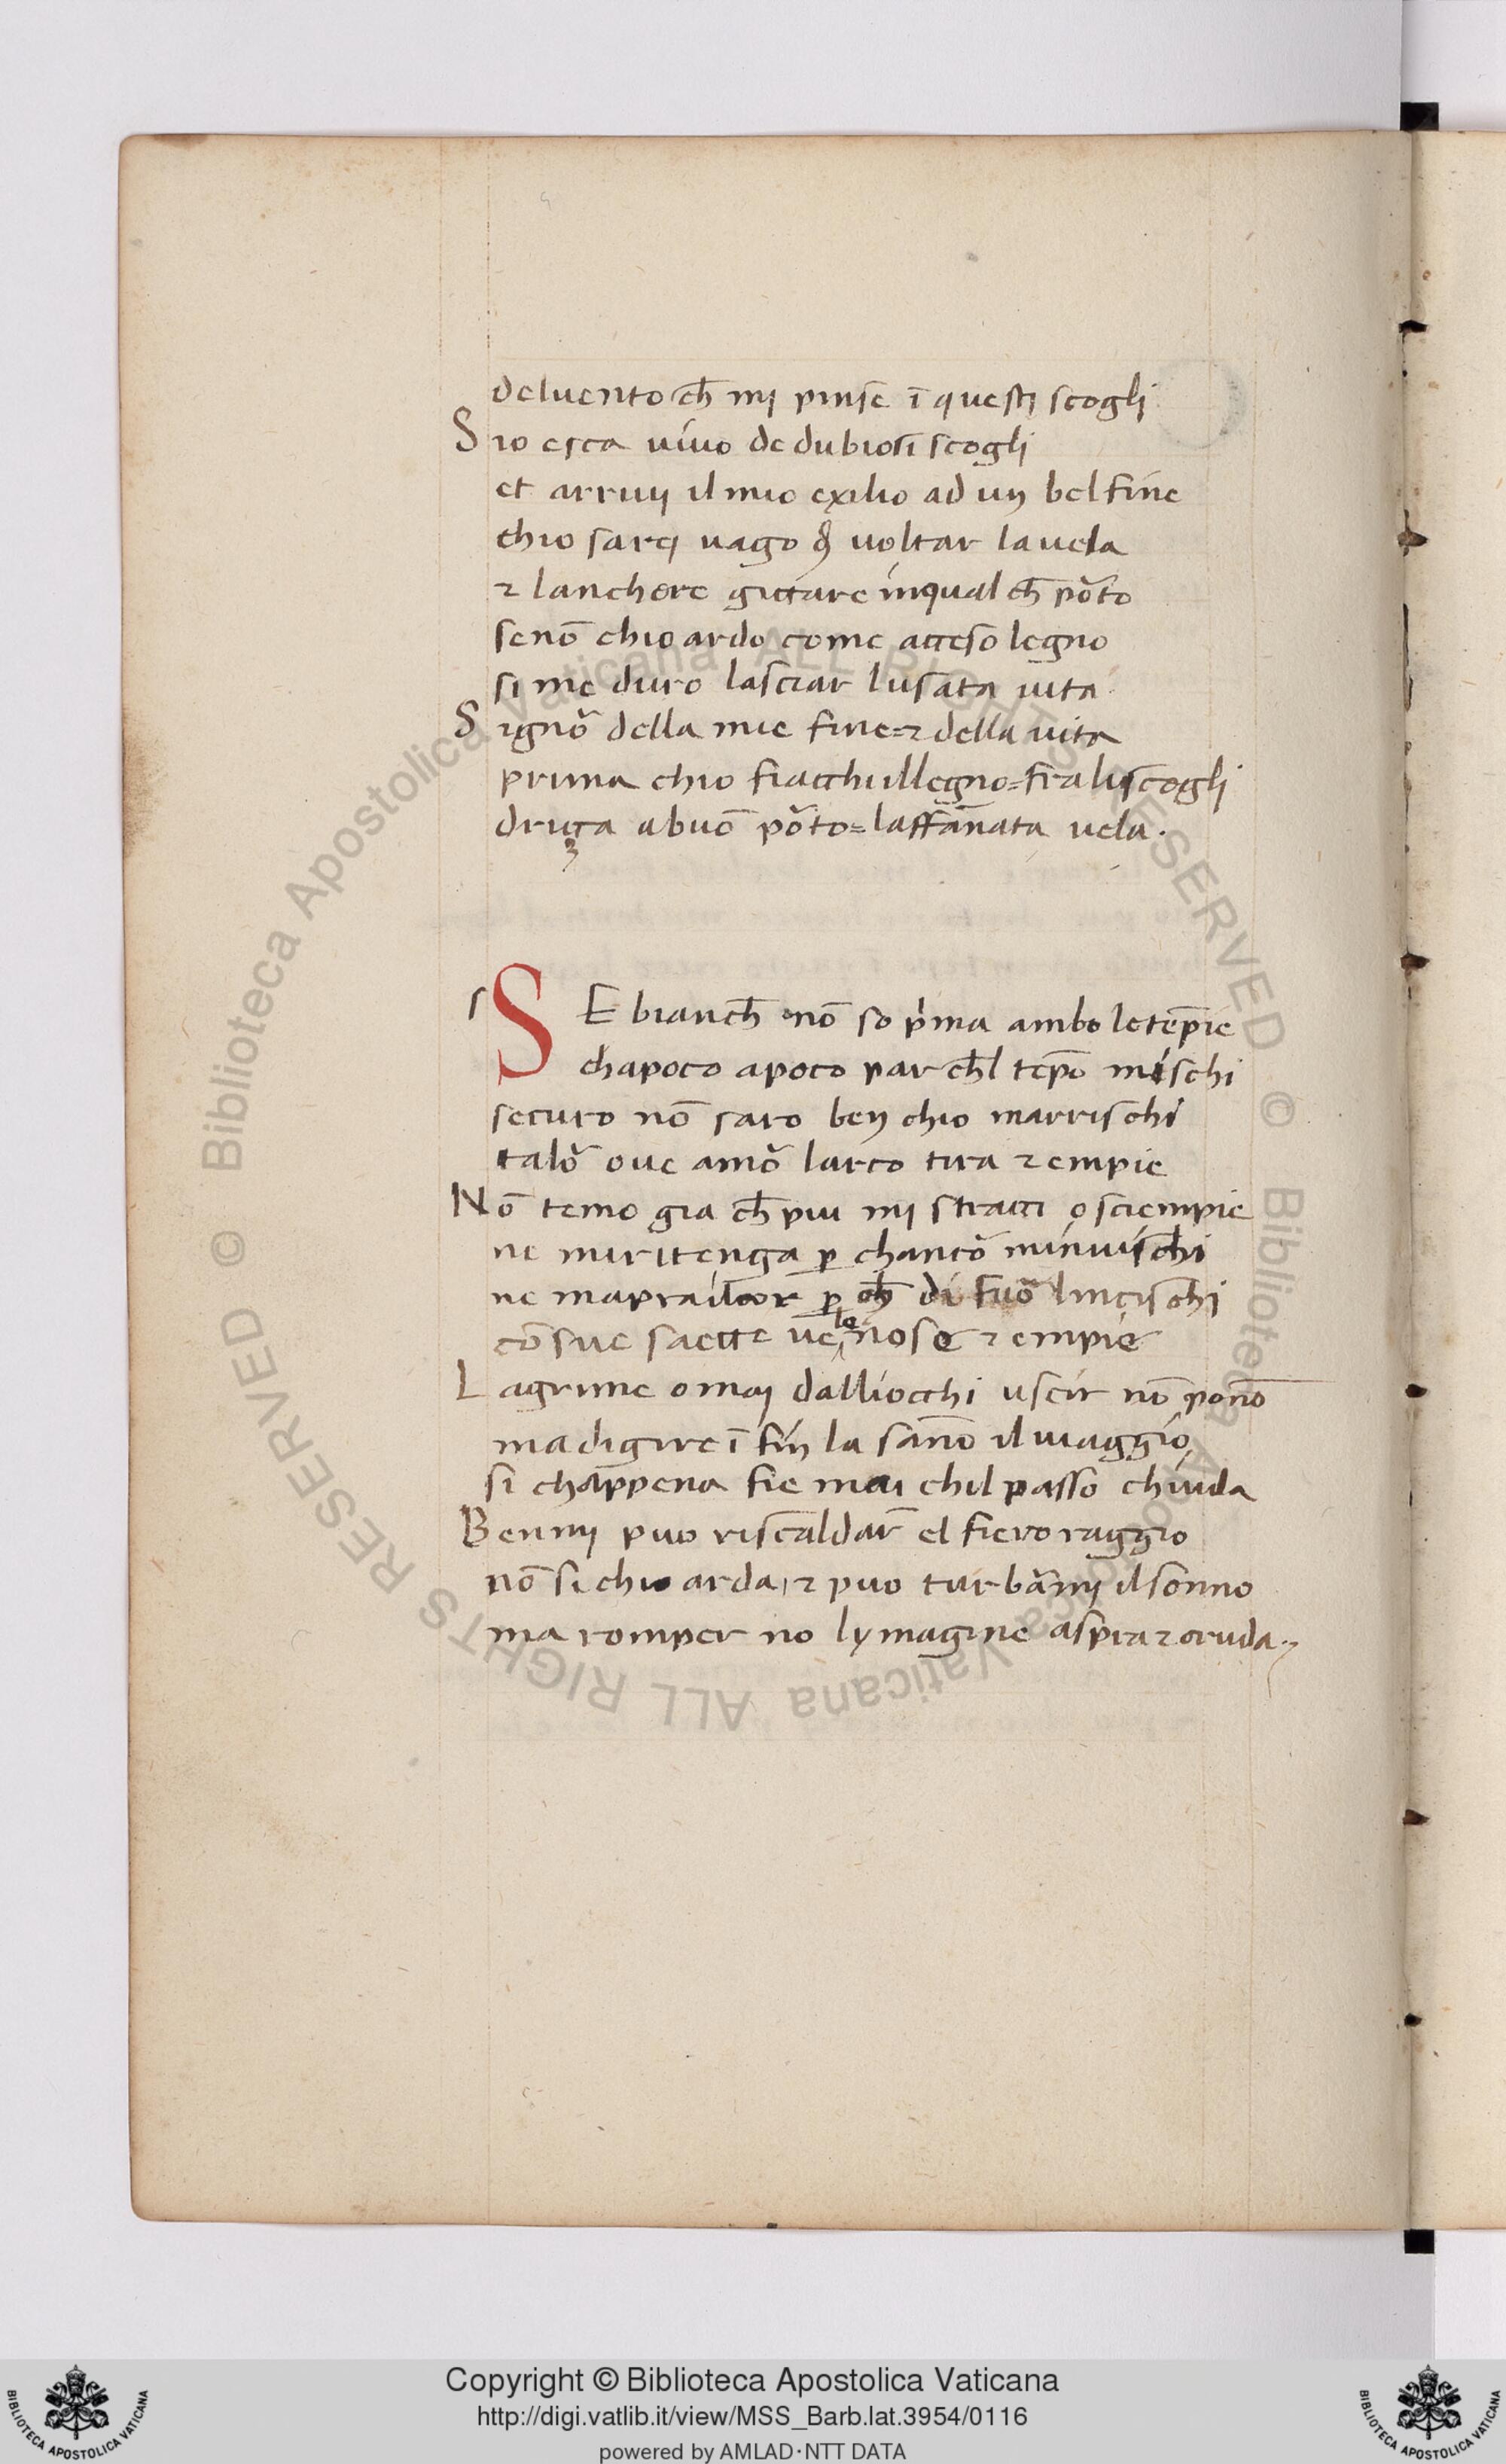 deluento ch̄ mj pinse ī questj scogli
S io esca uiuo de dubiosi scogli
et arriuj il mio exilio ad vn bel fine
chio sarej uago d̓ uoltar la uela
⁊ lanchore gittare inqual ch̄ pȯto
senō chio ardo come acceso legno
si me duro lasciar lusata uita
S ignȯ della mie fine=⁊ della uita
prima chio fiacchillegno=fra liscogli
driza a buō pȯto=laffān̄ata uela.
S E bianch̄ nō so p̓ma ambo letēpie
chapoco apoco par ch̄l tēpo mischi
securo nō saro ben chio marrischi
talȯ oue amȯ larco tira ⁊ empie
N ō temo gia ch̄ piu mj stracci o sciempie
ne miritenga ꝑ chancȯ minuischi
ne mapra ilcor ꝑ ch̄ di fuȯ lincischi
cō sue saette ue le nose ⁊ empie
L agrime omaj dalliocchi uscir nō ponō
ma digire ī fin la sānō il uiaggio
si chappena fie mai chil passo chiuda
B en mj puo riscaldar el fiero raggio
nō si chio arda, ⁊ puo turbārmj il sonno
ma romper no lymagine aspra ⁊ cruda.
Copyright © Biblioteca Apostolica Vaticana
http://digi.vatlib.it/view/MSS_Barb.lat.3954/0116
powered by AMLAD·NTT DATA
Biblioteca Apostolica Vaticana ALL RIGHTS RESERVED ©
Biblioteca Apostolica Vaticana ALL RIGHTS RESERVED ©
BIBLIOTECA APOSTOLICA VATICANA
BIBLIOTECA APOSTOLICA VATICANA